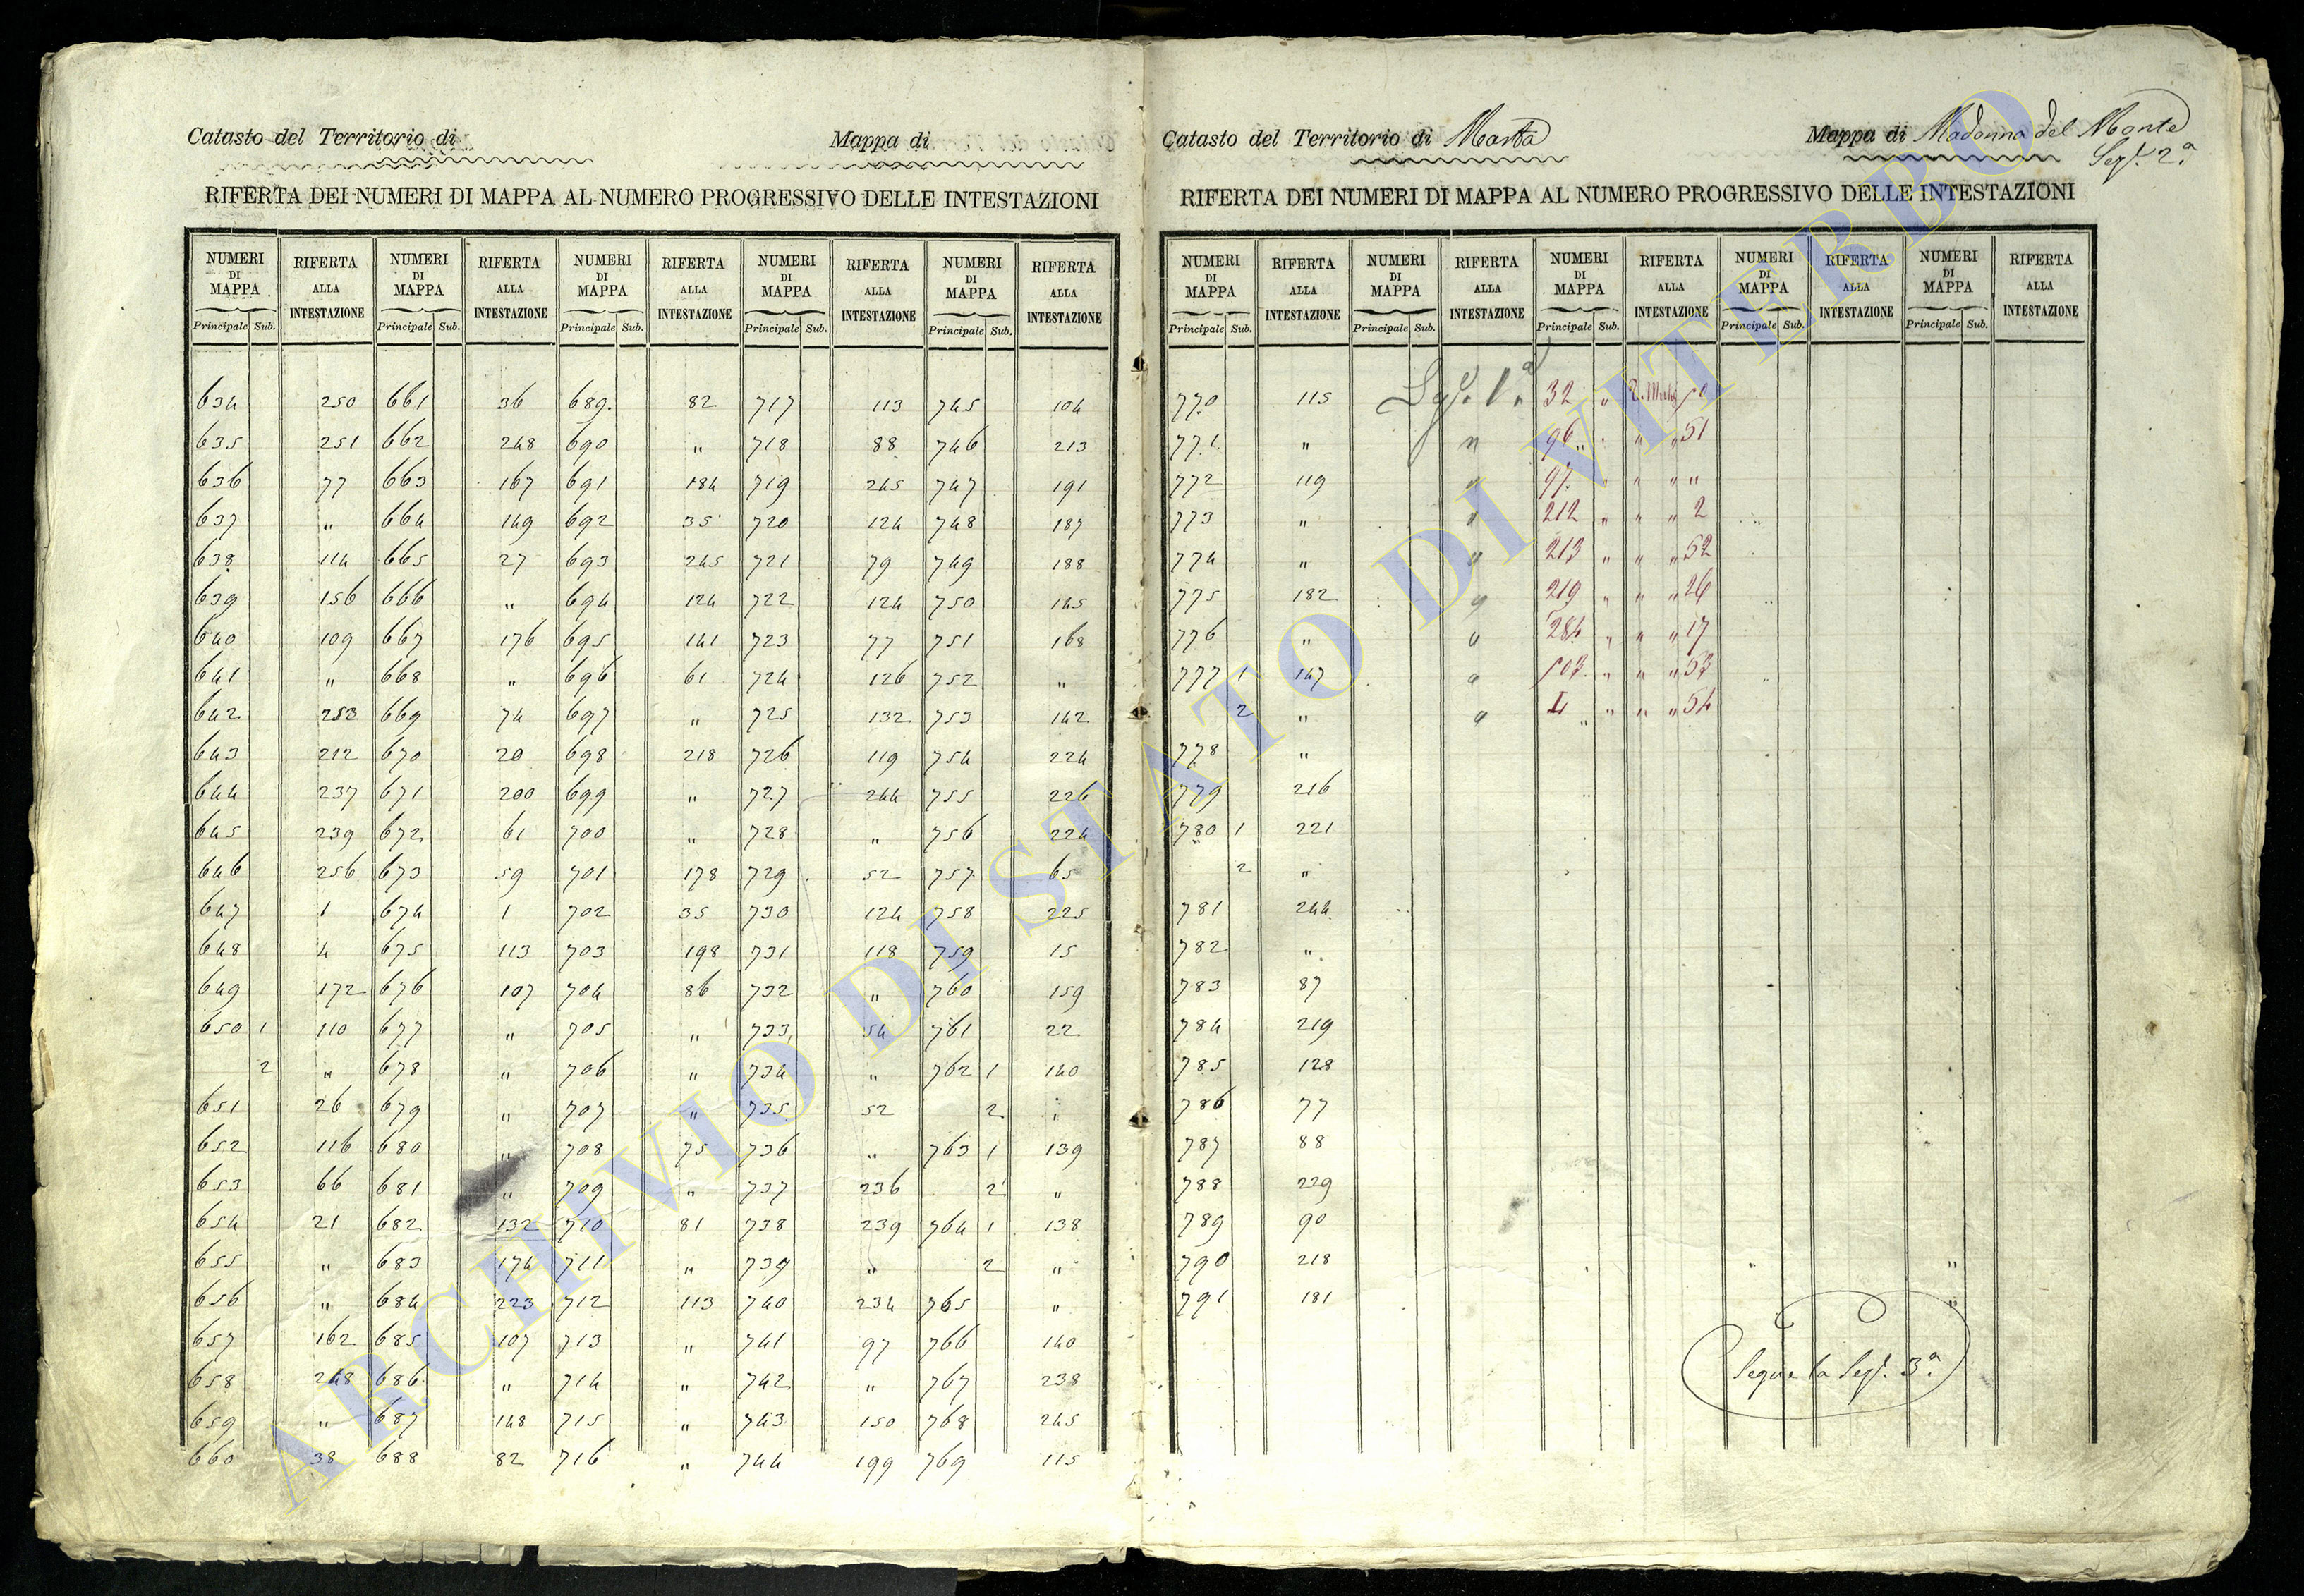 Catasto del Territorio di
Mappa di
RIFERTA DEI NUMERI DI MAPPA AL NUMERO PROGRESSIVO DELLE INTESTAZIONI
NUMERI DI MAPPA RIFERTA ALLA INTESTAZIONE NUMERI DI MAPPA RIFERTA ALLA INTESTAZIONE NUMERI DI MAPPA RIFERTA ALLA INTESTAZIONE NUMERI DI MAPPA RIFERTA ALLA INTESTAZIONE NUMERI DI MAPPA RIFERTA ALLA INTESTAZIONE
Principale Sub. Principale Sub. Principale Sub. Principale Sub. Principale Sub.
634 250 661 36 689 82 717 113 745 104
635 251 662 248 690 " 718 88 746 213
636 77 663 167 691 184 719 245 747 191
637 " 664 149 692 35 720 124 748 187
638 114 665 27 693 245 721 79 749 188
639 156 666 " 694 124 722 124 750 145
640 109 667 176 695 141 723 77 751 168
641 " 668 " 696 61 724 126 752 "
642 253 669 74 697 " 725 132 753 142
643 212 670 20 698 218 726 119 754 224
644 237 671 200 699 " 727 244 755 226
645 239 672 61 700 " 728 " 756 224
646 256 673 59 701 178 729 52 757 65
647 1 674 1 702 35 730 124 758 225
648 4 675 113 703 198 731 118 759 15
649 172 676 107 704 86 732 " 760 159
650 1 110 677 " 705 " 733 54 761 22
2 " 678 " 706 " 734 " 762 1 140
651 26 679 " 707 " 735 52 2 "
652 116 680 " 708 75 736 " 763 1 139
653 66 681 " 709 " 737 236 2 "
654 21 682 132 710 81 738 239 764 1 138
655 " 683 174 711 " 739 " 2 "
656 " 684 223 712 113 740 234 765 "
657 162 685 107 713 " 741 97 766 140
658 248 686 " 714 " 742 " 767 238
659 " 687 148 715 " 743 150 768 245
660 38 688 82 716 " 744 199 769 115
Catasto del Territorio di Marta
Mappa di Madonna del Monte
Sez. 2ª
RIFERTA DEI NUMERI DI MAPPA AL NUMERO PROGRESSIVO DELLE INTESTAZIONI
NUMERI DI MAPPA RIFERTA ALLA INTESTAZIONE NUMERI DI MAPPA RIFERTA ALLA INTESTAZIONE NUMERI DI MAPPA RIFERTA ALLA INTESTAZIONE NUMERI DI MAPPA RIFERTA ALLA INTESTAZIONE NUMERI DI MAPPA RIFERTA ALLA INTESTAZIONE
Principale Sub. Principale Sub. Principale Sub. Principale Sub. Principale Sub.
770 115 32 "
771 " " 96 " " " 51
772 119 " 97 " " " "
773 " " 212 " " " 2
774 " " 213 " " " 52
775 182 " 219 " " " 26
776 " " 284 " " " 17
777 1 147 " 103 " " " 53
2 " " " " " 54
778 "
779 216
780 1 221
2 "
781 244
782 "
783 87
784 219
785 128
786 77
787 88
788 229
789 90
790 218 "
791 181 "
Segue la Sez. 3ª
ARCHIVIO DI STATO DI VITERBO